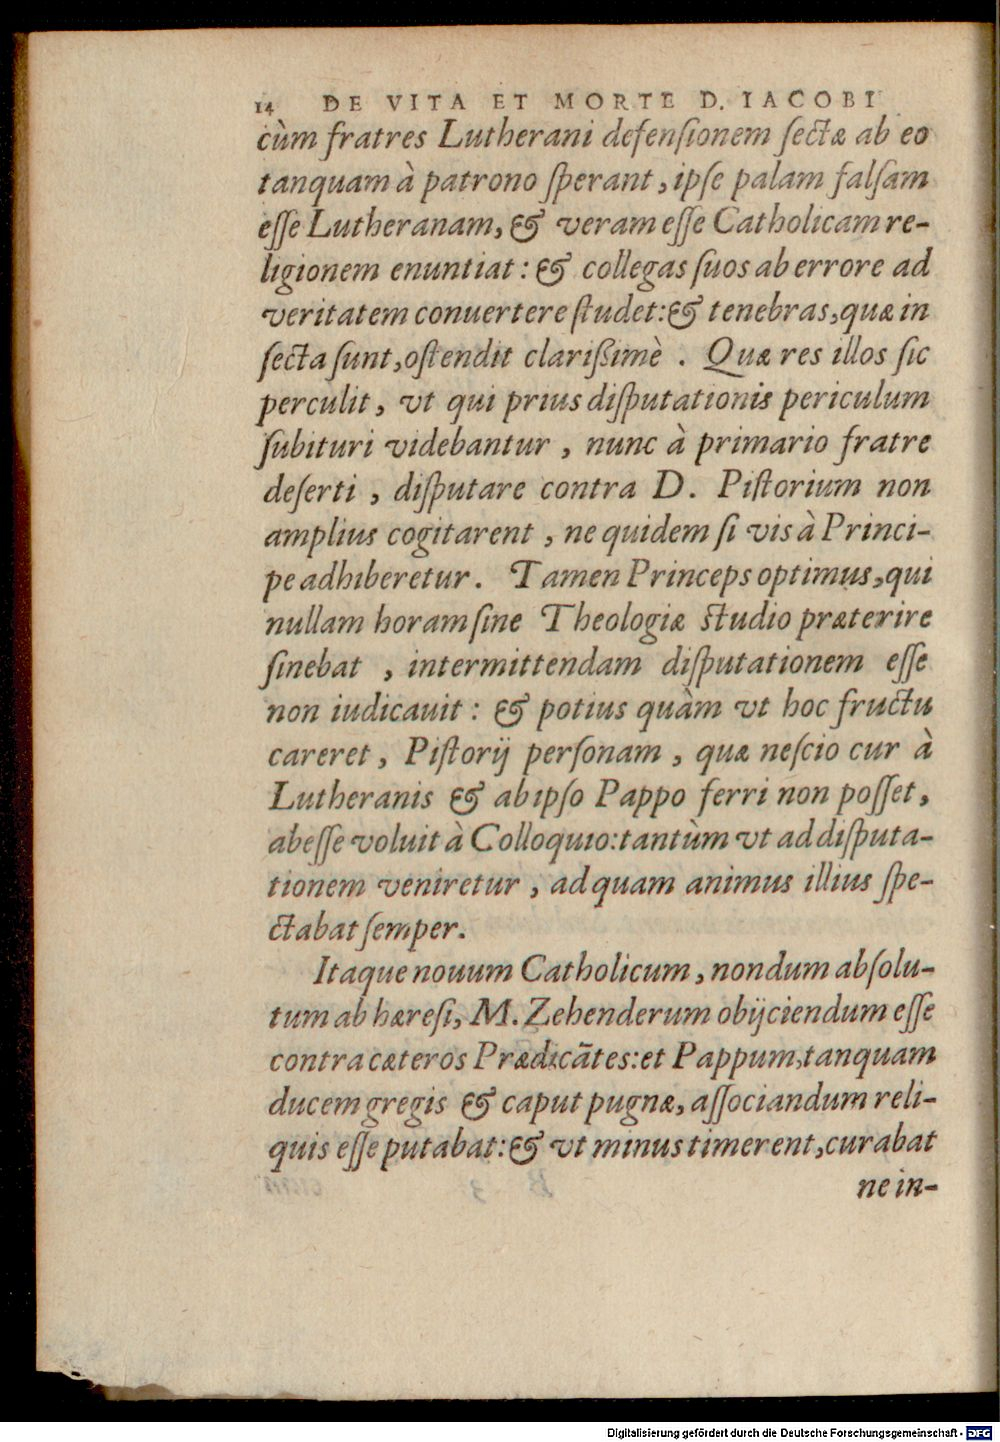 14 DE VITA ET MORTE D. IACOBI
cùm fratres Lutherani defenſionem ſectæ ab eo
tanquam à patrono ſperant, ipſe palam falſam
eſſe Lutheranam, & veram eſſe Catholicam re-
ligionem enuntiat: & collegas ſuos ab errore ad
veritatem conuertere ſtudet: & tenebras, quæ in
ſecta ſunt, oſtendit clarißimè. Quæ res illos ſic
perculit, vt qui prius diſputationis periculum
ſubituri videbantur, nunc à primario fratre
deſerti, diſputare contra D. Piſtorium non
amplius cogitarent, ne quidem ſi vis à Princi-
pe adhiberetur. Tamen Princeps optimus, qui
nullam horam ſine Theologiæ ſtudio præterire
ſinebat, intermittendam diſputationem eſſe
non iudicauit: & potius quàm vt hoc fructu
careret, Piſtorij perſonam, quæ neſcio cur à
Lutheranis & ab ipſo Pappo ferri non poſſet,
abeſſe voluit à Colloquio: tantùm vt ad diſputa-
tionem veniretur, ad quam animus illius ſpe-
ctabat ſemper.
Itaque nouum Catholicum, nondum abſolu-
tum ab hæreſi, M. Zehenderum obijciendum eſſe
contra cæteros Prædicãtes: et Pappum, tanquam
ducem gregis & caput pugnæ, aſſociandum reli-
quis eſſe putabat: & vt minus timerent, curabat
ne in-
Digitalisierung gefördert durch die Deutsche Forschungsgemeinschaft - DFG